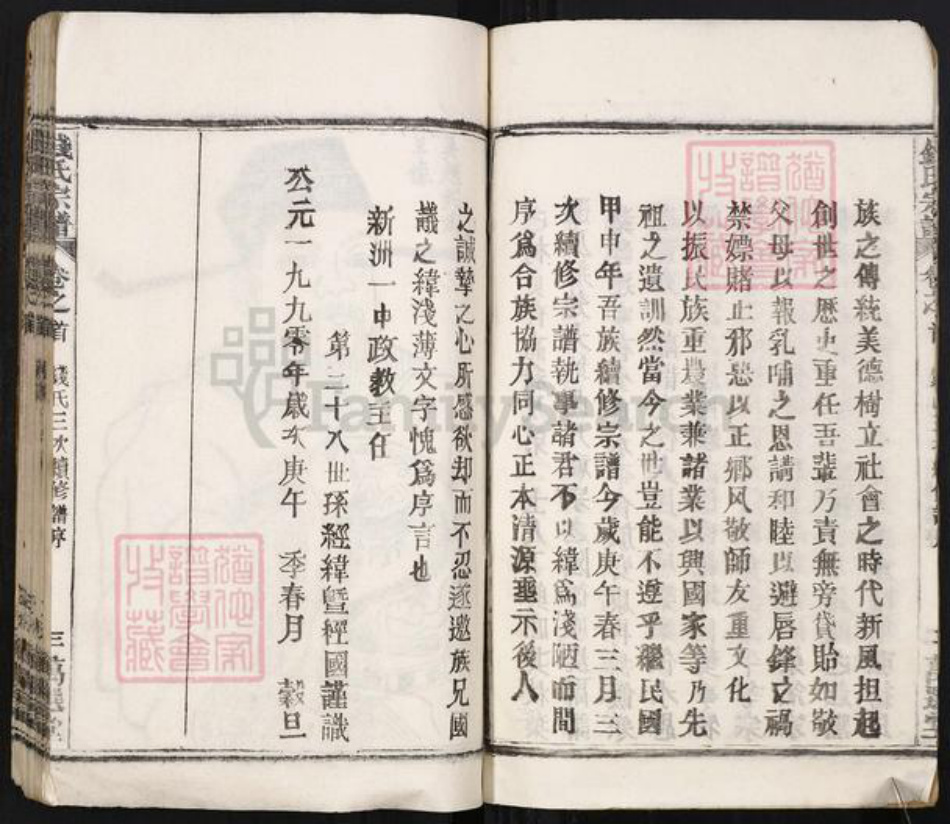 族之傳統美德樹立社會之時代新風担起
創世之歷史重任吾輩方責無旁貸貽如敬
父母以報乳哺之恩請和睦以避唇鋒之禍
禁嫖賭止邪惡以正鄉风敬師友重文化
以振民族重農業兼諸業以興國家等乃先
祖之遺訓然當今之世豈能不遵乎繼民國
甲申年吾族續修宗譜今歲庚午春三月三
次續修宗譜執事諸君不以緯爲淺陋而間
序爲合族協力同心正本清源垂示後人
之誠摯之心所感欲却而不忍遂邀族兄國
議之緯淺薄文字愧爲序言也
新洲一中政教主任
第二十八世孫經緯暨經國謹識
公元一九九零年歲次庚午 季春月 穀旦
錢氏宗譜 卷之首 錢氏三次續修譜序 三 萬選堂
猶他家譜學會收藏
猶他家譜學會收藏
FamilySearch